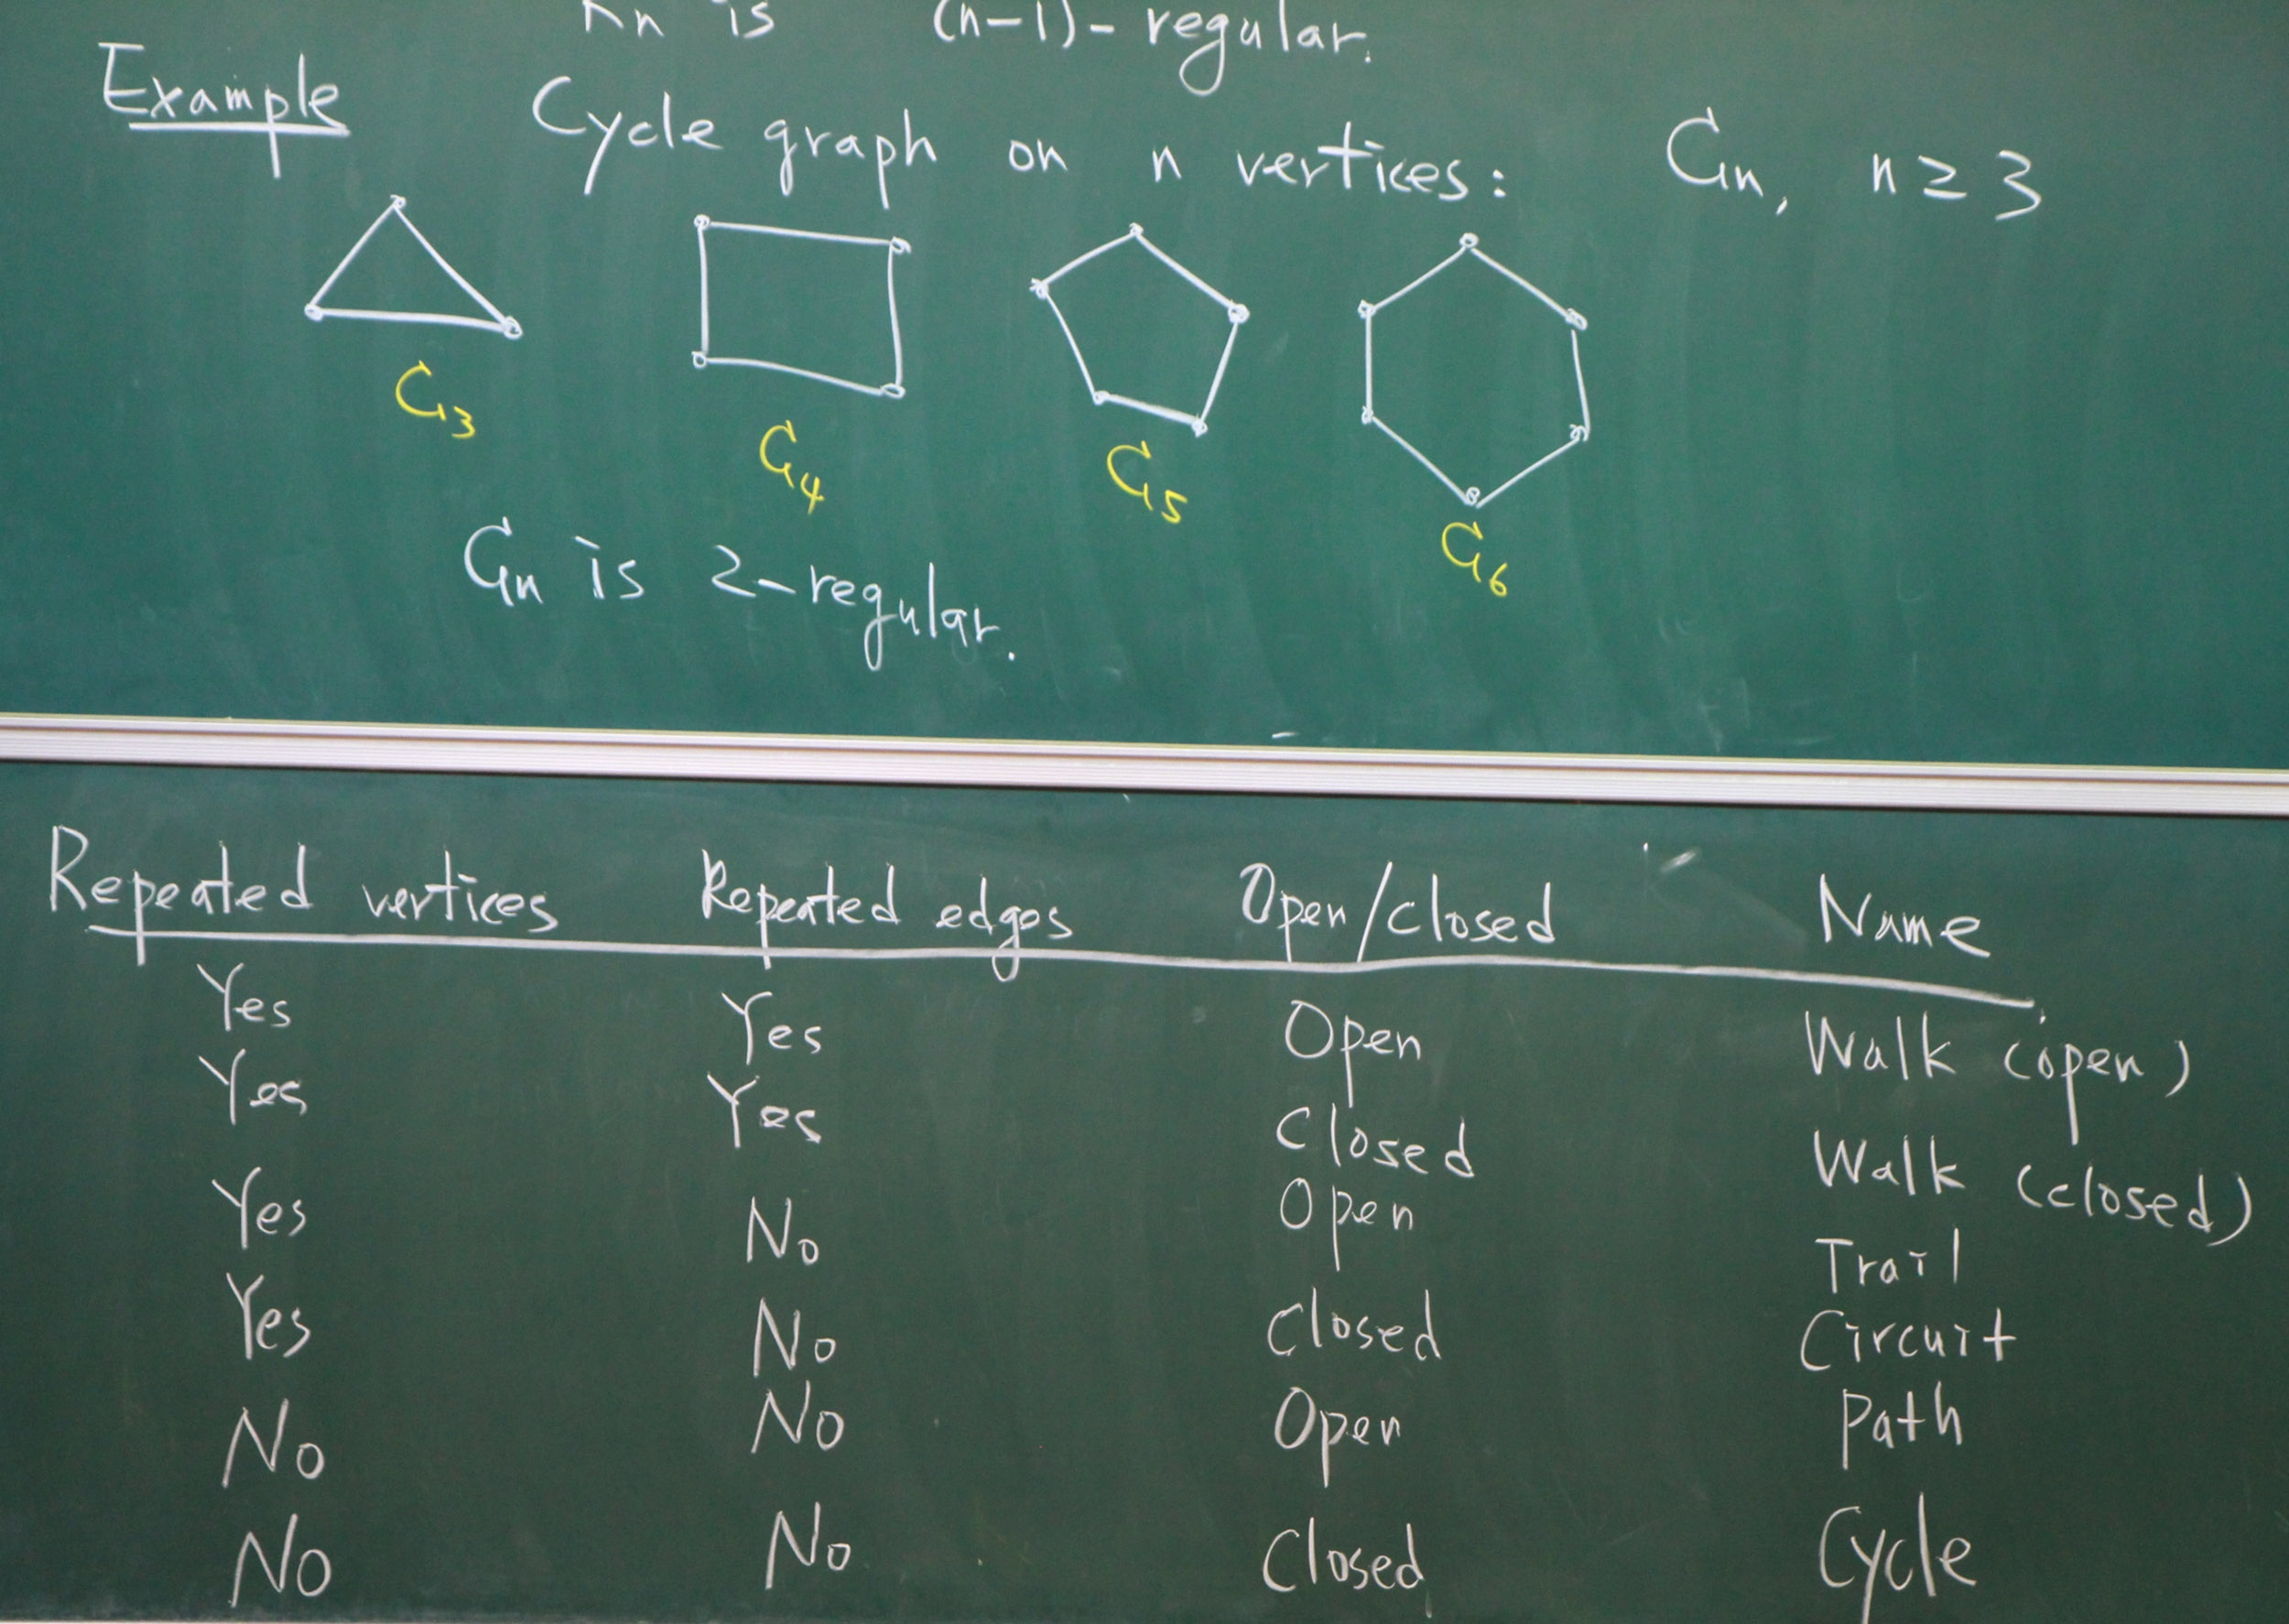 Kn is (n-1)-regular.
Example Cycle graph on n vertices: Cn, n≥3
C3 C4 C5 C6
Cn is 2-regular.
Repeated vertices Repeated edges Open/closed Name
Yes Yes Open Walk (open)
Yes Yes Closed Walk (closed)
Yes No Open Trail
Yes No Closed Circuit
No No Open Path
No No Closed Cycle